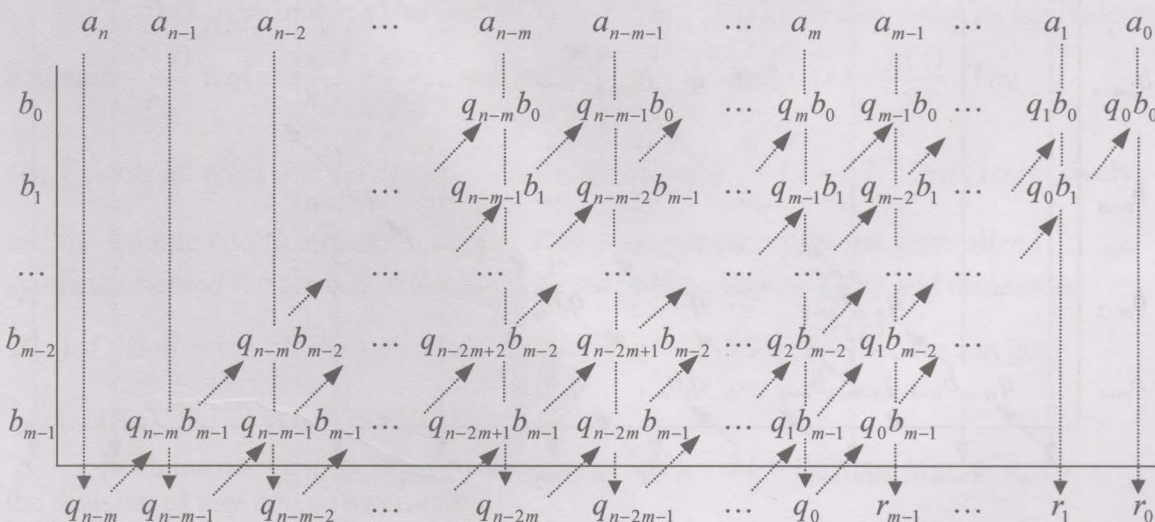 a_n a_{n-1} a_{n-2} ... a_{n-m} a_{n-m-1} ... a_m a_{m-1} ... a_1 a_0
b_0 q_{n-m}b_0 q_{n-m-1}b_0 ... q_mb_0 q_{m-1}b_0 ... q_1b_0 q_0b_0
b_1 ... q_{n-m-1}b_1 q_{n-m-2}b_{m-1} ... q_{m-1}b_1 q_{m-2}b_1 ... q_0b_1
... ... ... ... ... ... ... ...
b_{m-2} q_{n-m}b_{m-2} ... q_{n-2m+2}b_{m-2} q_{n-2m+1}b_{m-2} ... q_2b_{m-2} q_1b_{m-2} ...
b_{m-1} q_{n-m}b_{m-1} q_{n-m-1}b_{m-1} ... q_{n-2m+1}b_{m-1} q_{n-2m}b_{m-1} ... q_1b_{m-1} q_0b_{m-1}
q_{n-m} q_{n-m-1} q_{n-m-2} ... q_{n-2m} q_{n-2m-1} ... q_0 r_{m-1} ... r_1 r_0